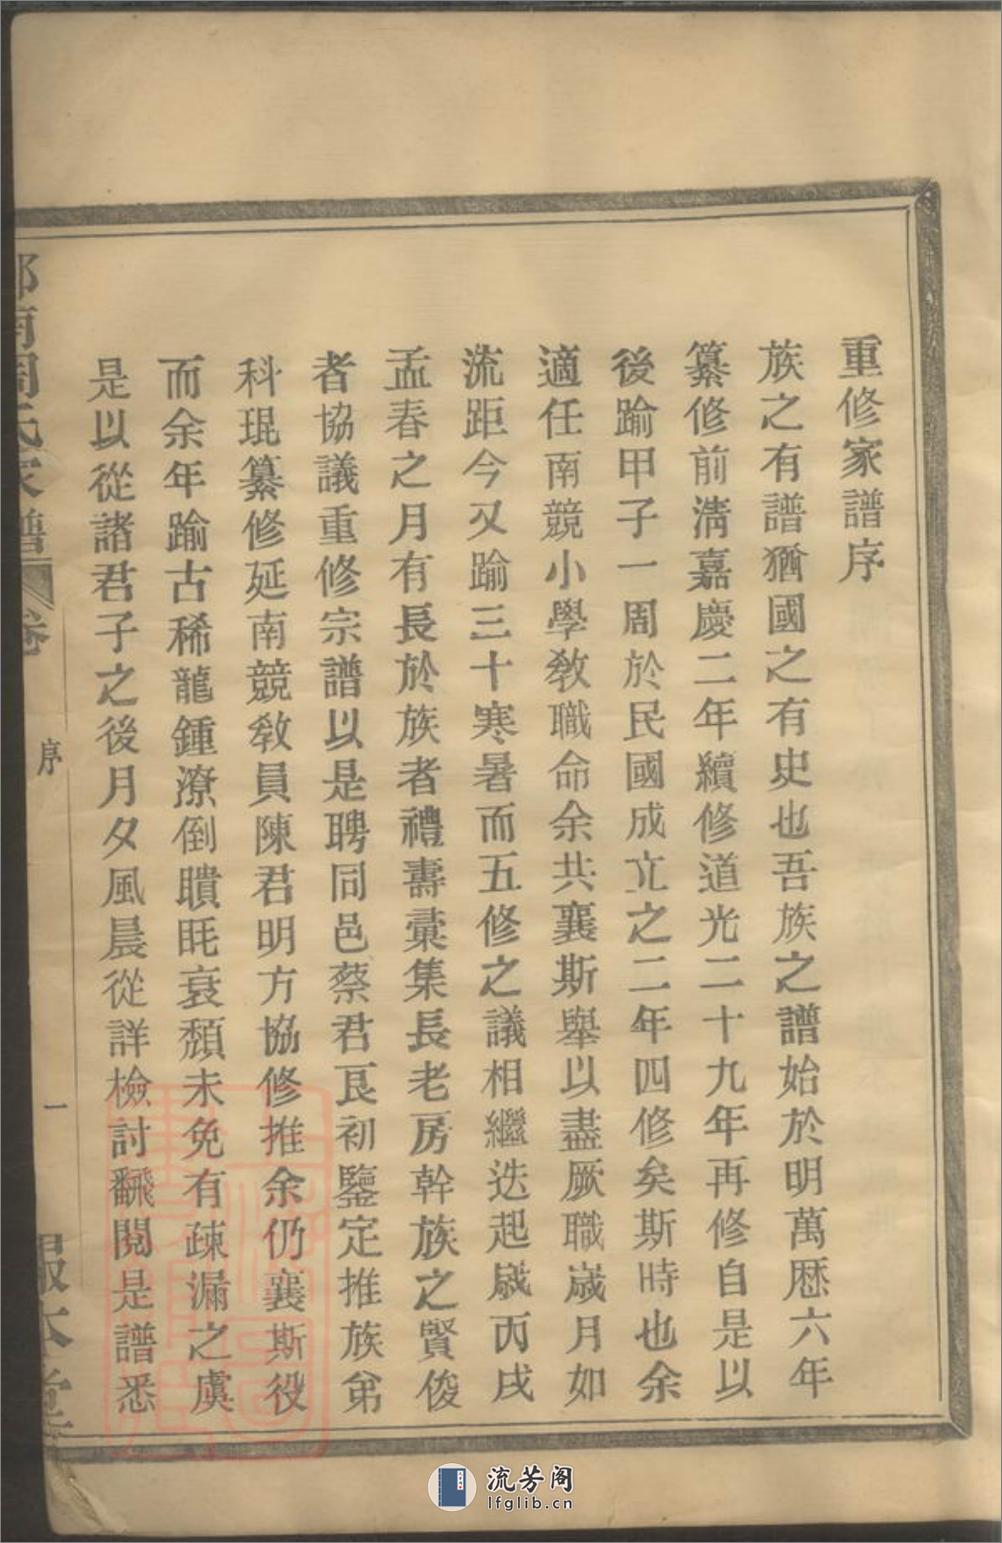 重修家譜序
族之有譜猶國之有史也吾族之譜始於明萬厯六年
纂修前清嘉慶二年續修道光二十九年再修自是以
後踰甲子一周於民國成立之二年四修矣斯時也余
適任南競小學教職命余共襄斯舉以盡厥職嵗月如
流距今又踰三十寒暑而五修之議相繼迭起嵗丙戌
孟春之月有長於族者禮壽彙集長老房幹族之賢俊
者協議重修宗譜以是聘同邑蔡君艮初鑒定推族弟
科琨纂修延南競教員陳君明方協修推余仍襄斯役
而余年踰古稀龍鍾潦倒聵眊衰頽未免有疎漏之虞
是以從諸君子之後月夕風晨從詳檢討翻閱是譜悉
南周氏家譜
卷
序
一
報本堂
流芳阁
lfglib.cn